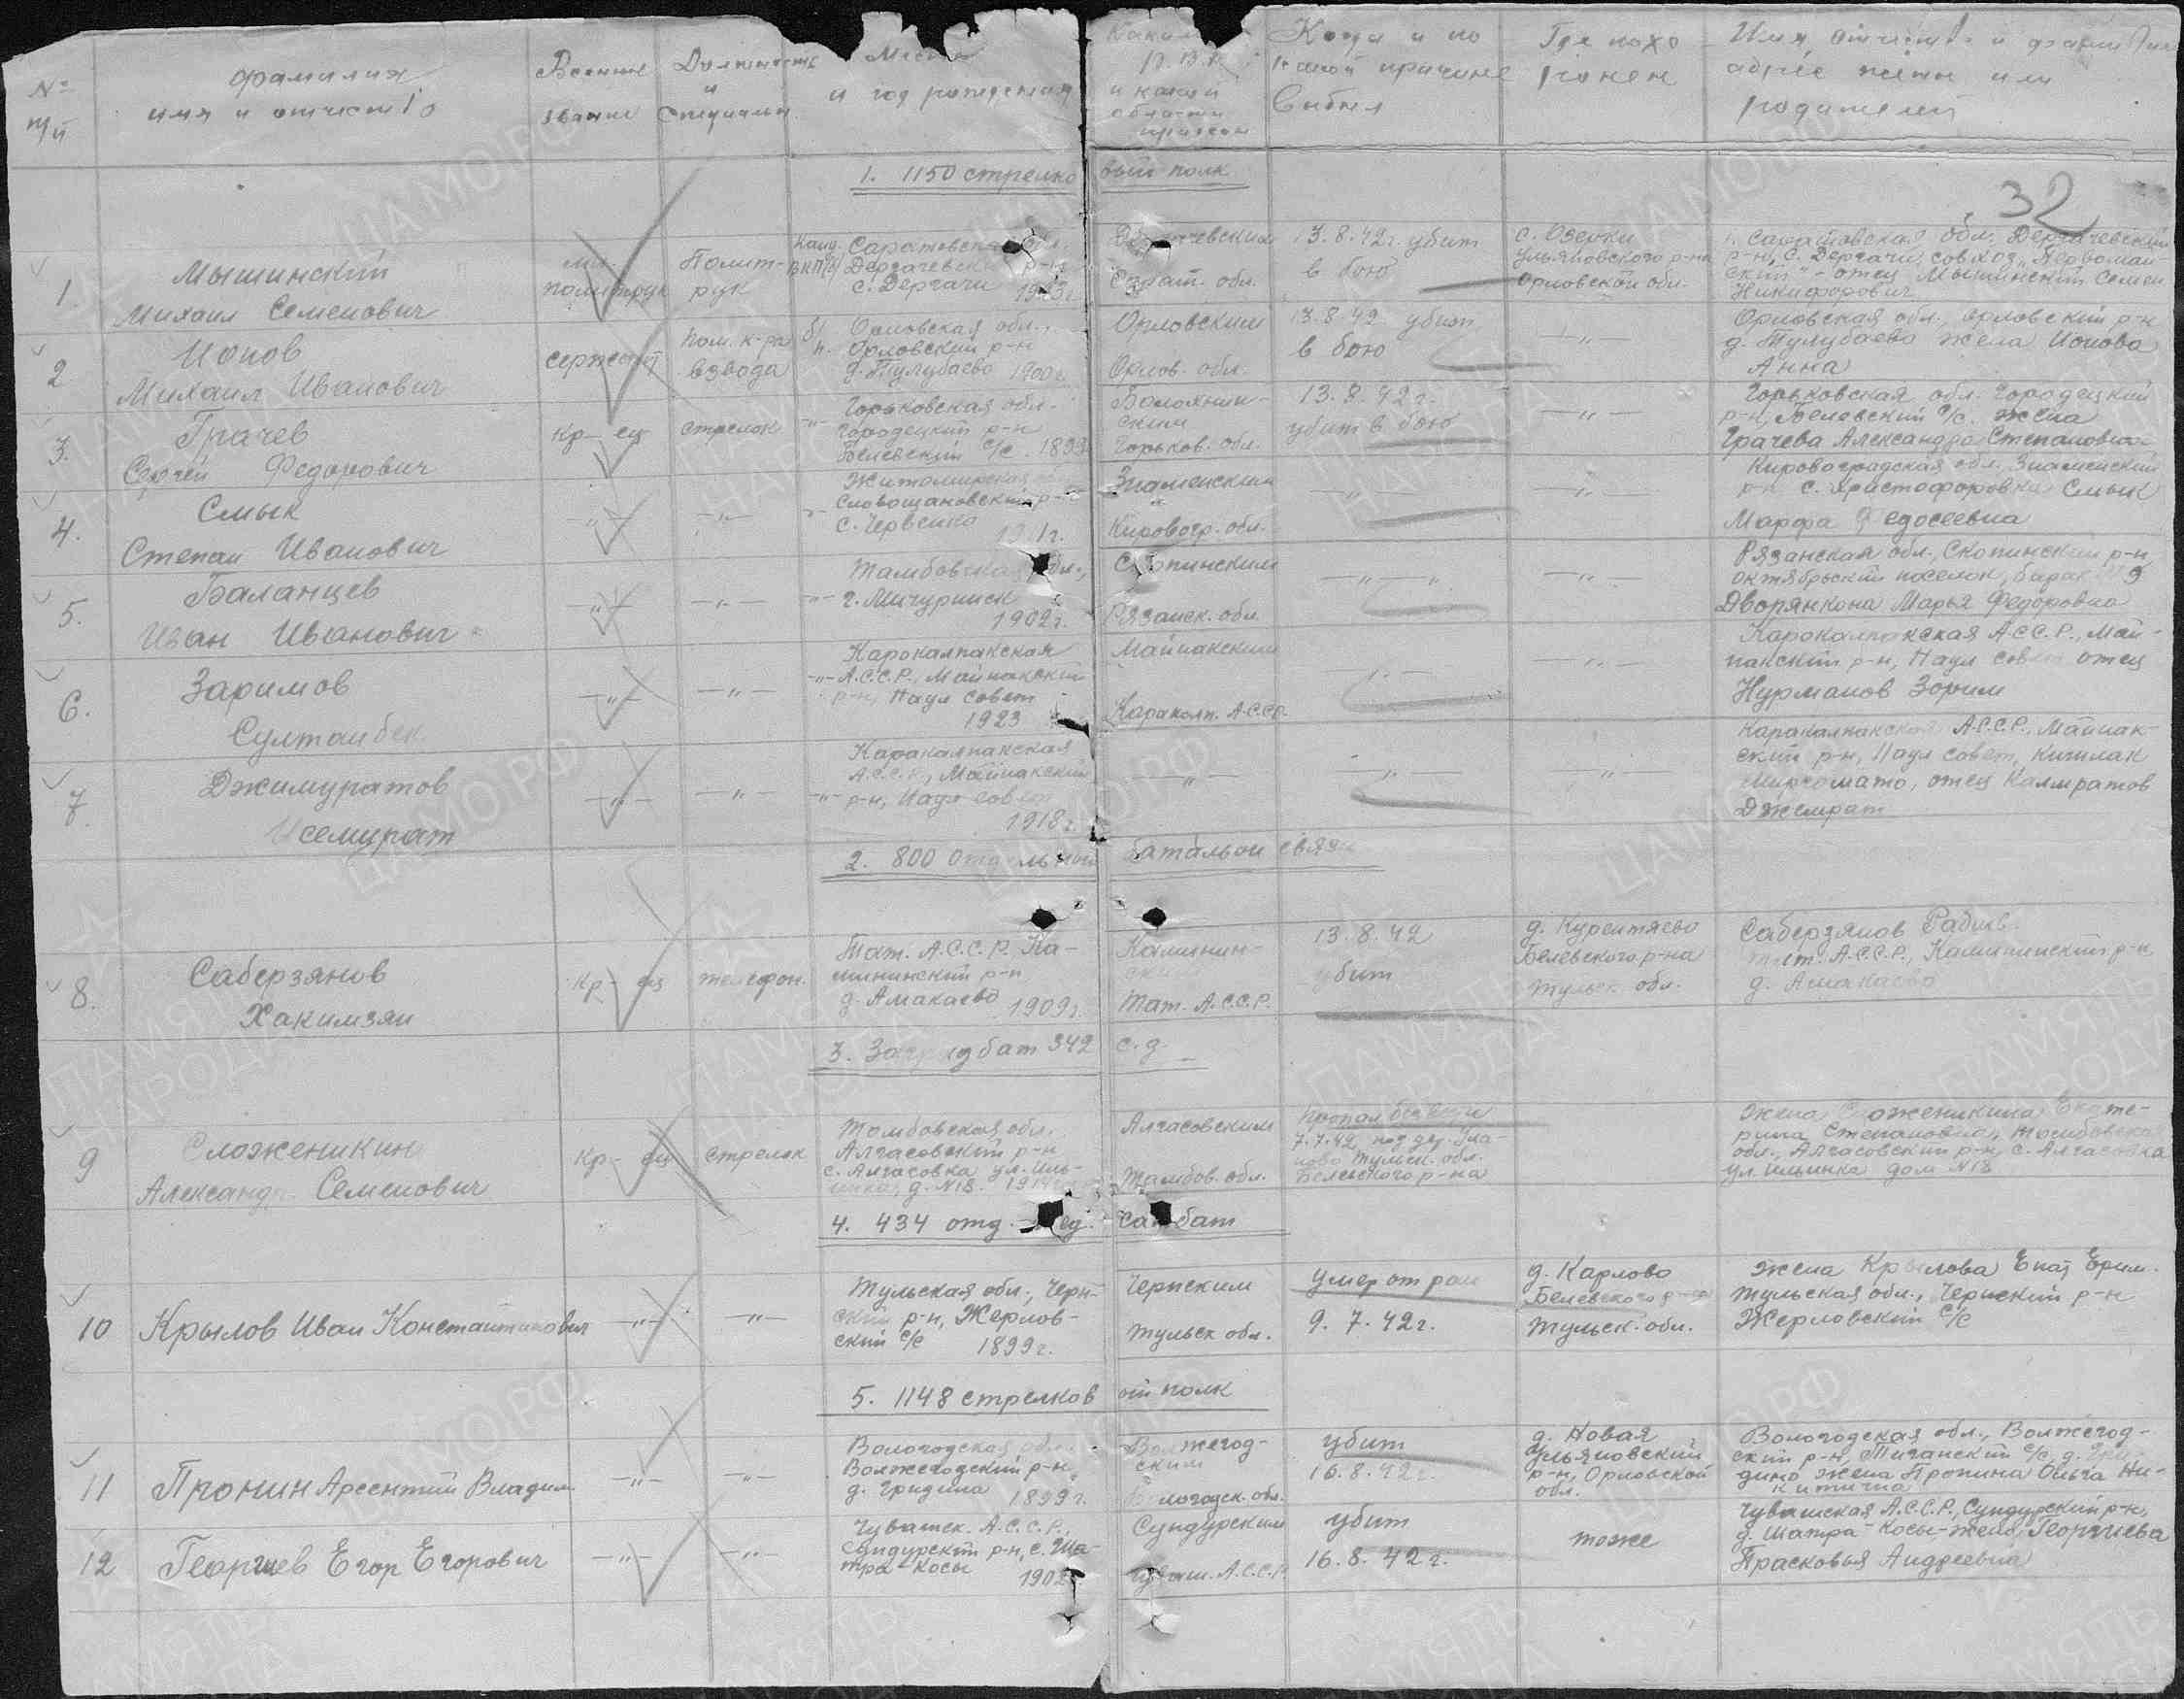 № п/п
Фамилия
имя и отчество
Военное
звание
Должность
и
специальн.
Место
и год рождения
Каким
Р.В.К.
и какой
области
призван
Когда и по
какой причине
выбыл
Где похо
ронен
Имя отчество и фамилия
адрес жены или
родителей
1. 1150 стрелковый полк
32
1.
Мышинский
Михаил Семенович
мл.
политрук
Полит-
рук
Канд.
ВКП(б)
Саратовская обл.
Дергачевский р-н
с. Дергачи 1913г.
Дергачевским
Сарат. обл.
13.8.42г. убит
в бою
с. Озерки
Ульяновского р-на
Орловской обл.
Саратовская обл. Дергачевский
р-н, с. Дергачи, совхоз „Первомай-
ский" - отец Мышинский Семен
Никифорович
2
Ионов
Михаил Иванович
сержант
Пом. к-ра
взвода
б/
п.
Орловская обл.,
Орловский р-н
д. Тулубаево 1900г.
Орловским
Орлов. обл.
13.8.42 убит
в бою
—„—
Орловская обл., Орловский р-н
д. Тулубаево жена Ионова
Анна
3.
Грачев
Сергей Федорович
Кр-ец
стрелок
-„-
Горьковская обл.
Городецкий р-н
Белевский с/с. 1899
ским
Горьков. обл.
13.8.42г.
убит в бою
—„—
Горьковская обл. Городецкий
р-н, Белевский с/с. жена
Грачева Александра Степановна
4.
Смык
Степан Иванович
—„—
—„—
Житомирская
р-н
с. Червенко
Знаменским
Кировогр. обл.
—„—„—
—„—
Кировоградская обл., Знаменский
р-н с. Христофоровка Смык
Марфа Федосеевна
5.
Баланцев
Иван Иванович
—„—
—„—
-„-
Тамбовская обл.,
г. Мичуринск
1902г.
Скопинским
Рязанск. обл.
—„—„—
—„—
Рязанская обл., Скопинский р-н
октябрьский поселок, барак № 9
Дворянкона Марья Федоровна
6.
Заримов
Султанбек
—„—
—„—
-„-
Карокалпакская
А.С.С.Р., Майпакский
р-н, Паул совет
1923
Майпакским
Каракалп. А.С.С.Р.
—„—
—„—
Карокалпакская А.С.С.Р., Май-
пакский р-н, Паул совет отец
Нурманов Зорим
7.
Джимуратов
Исемурат
—„—
—„—
-„-
Каракалпакская
А.С.С.Р., Майпакский
р-н, Паул совет
1918г.
—„—
—„—
—„—
Каракалпакская А.С.С.Р., Майпак-
ский р-н, Паул совет, кишлак
Мирзомато, отец Калмратов
Джемрат
2. 800 Отдельный батальон связи
8.
Саберзянов
Хакимзян
Кр-ец
телефон.
Тат. А.С.С.Р. Ка-
лининский р-н
д. Амакаево 1909г.
Калинин-
ским
Тат. А.С.С.Р.
13.8.42
убит
д. Курентяево
Белевского р-на
Тульск. обл.
Саберзянов Радив.
Тат. А.С.С.Р., Калининский р-н
д. Амакаево
3. Заградбат 342 с.д.
9
Сложеникин
Александр Семенович
Кр-ец
стрелок
Тамбовская обл.
Алгасовский р-н
с. Алгасовка ул. Иль-
инка, д. №18.
Алгасовским
Тамбов. обл.
Пропал без вести
7.7.42, под дер.
Тульск. обл.
Белевского р-на
жена Сложеникина Екате-
рина Степановна, Тамбовская
обл., Алгасовский р-н, с. Алгасовка
ул. Ильинка дом №18
4. 434 отд. мед. санбат
10
Крылов Иван Константинович
—„—
—„—
Тульская обл., Черн-
ский р-н, Жерлов-
ский с/с 1899г.
Чернским
Тульск обл.
умер от ран
9.7.42г.
д. Карлово
Белевского р-на
Тульск. обл.
жена Крылова Екат Ефим.
Тульская обл., Чернский р-н
Жерловский с/с
5. 1148 стрелковый полк
11
Пронин Арсентий Владим.
—„—
—„—
Вологодская обл.
Волжегодский р-н
д. Гридина 1899г.
Волжегод-
ским
Вологодск. обл.
убит
16.8.42г.
д. Новая
Ульяновский
р-н, Орловской
обл.
Вологодская обл., Волжегод-
ский р-н, Тиганский с/с д. Гри-
дино жена Пронина Ольга Ни-
китична
12
Георгиев Егор Егорович
—„—
—„—
Чувашск. А.С.С.Р.,
Сундурский р-н, с. Ша-
тра-Косы 1902
Сундурским
Чуваш. А.С.С.Р.
убит
16.8.42г.
тоже
Чувашская А.С.С.Р., Сундурский р-н,
д. Шатра-Косы-жена Георгиева
Прасковья Андреевна